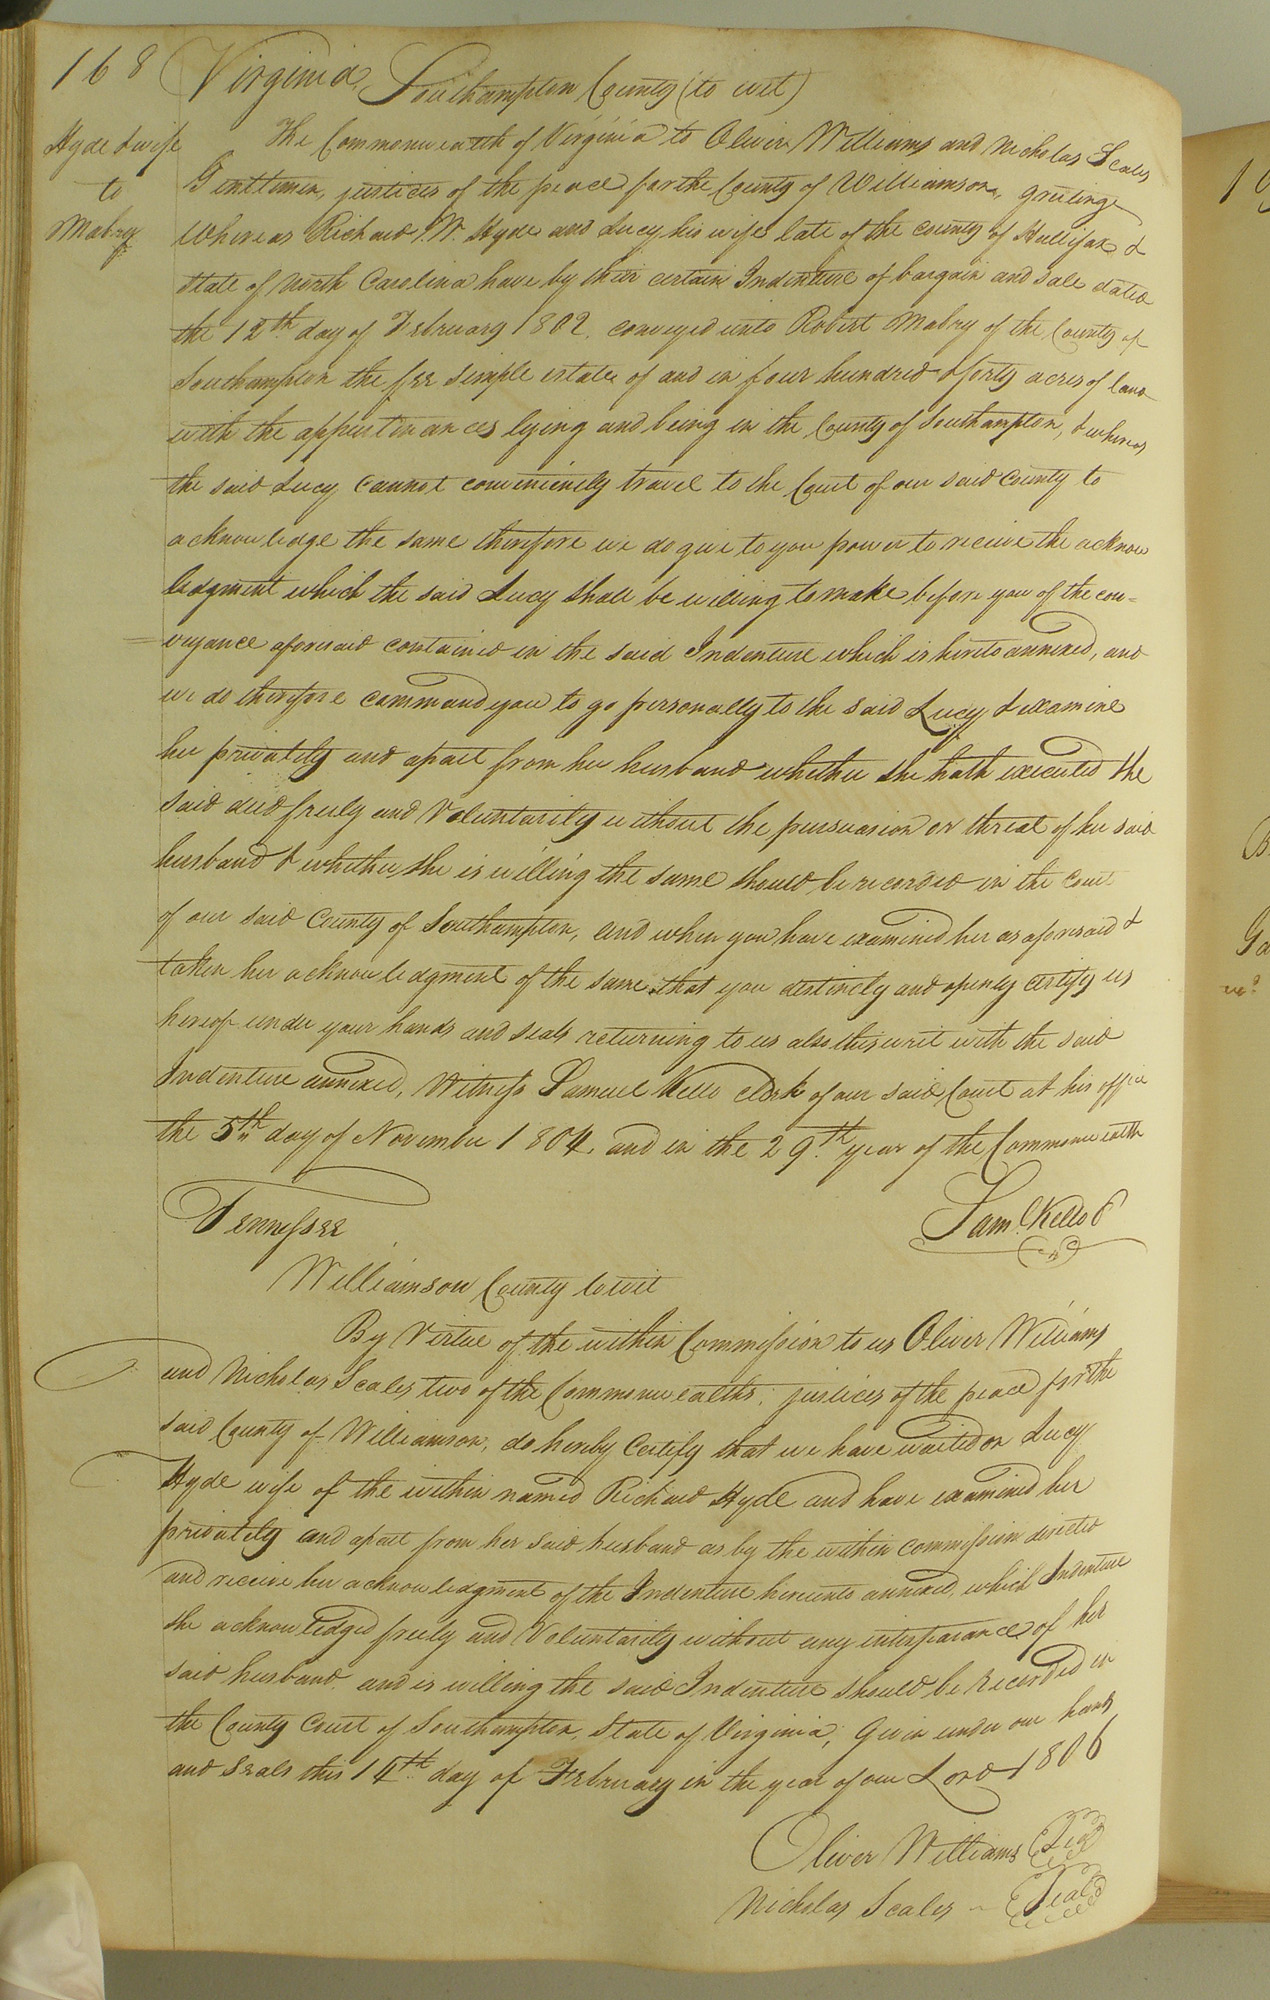 168
Virginia, Southampton County (to wit)
Hyde & wife
to
Mabry
The Commonwealth of Virginia to Oliver Williams and Nicholas Scales
Gentlemen, justices of the peace for the County of Williamson, greeting
Whereas Richard W. Hyde and Lucy his wife late of the county of Hallifax &
State of North Carolina have by their certain Indenture of bargain and sale dated
the 12th day of February 1802. conveyed unto Robert Mabry of the County of
Southampton the fee simple estate of and in four hundred & forty acres of land
with the appurtinances lying and being in the County of Southampton, & whereas
the said Lucy cannot conveniently travel to the Court of our said county to
acknowledge the same therefore we do give to you power to receive the acknow
ledgment which the said Lucy shall be willing to make before you of the con=
=veyance aforesaid contained in the said Indenture which is hereto annexed, and
we do therefore command you to go personally to the said Lucy & examine
her privately and apart from her husband whether she hath executed the
said deed freely and Voluntarily without the pursuasion or threat of her said
husband & whether she is willing the same should be recorded in the Court
of our said County of Southampton, and when you have examined her as aforesaid &
taken her acknowledgment of the same that you distincly and openly certify us
hereof under your hands and seals returning to us also this writ with the said
Indenture annexed, Witness Samuel Kello clerk of our said Court at his office
the 5th day of November 1804. and in the 29th year of the Commonwealth
Sam. Kello
Tennessee
Williamson County towit
By Virtue of the within Commission to us Oliver Williams
and Nicholas Scales two of the Commonwealths, justices of the peace for the
said County of Williamson, do hereby Certify that we have waited on Lucy
Hyde wife of the within named Richard Hyde and have examined her
privately and apart from her said husband as by the within commission directed
and receive her acknowledgment of the Indenture hereunto annexed, which Indenture
she acknowledged freely and Voluntarily without any interfearance of her
said husband. and is willing the said Indenture should be Recorded in
the County Court of Southampton, State of Virginia, Given under our hands
and Seals this 14th day of February in the year of our Lord 1806
Oliver Williams Seal
Nicholas Scales - Seal